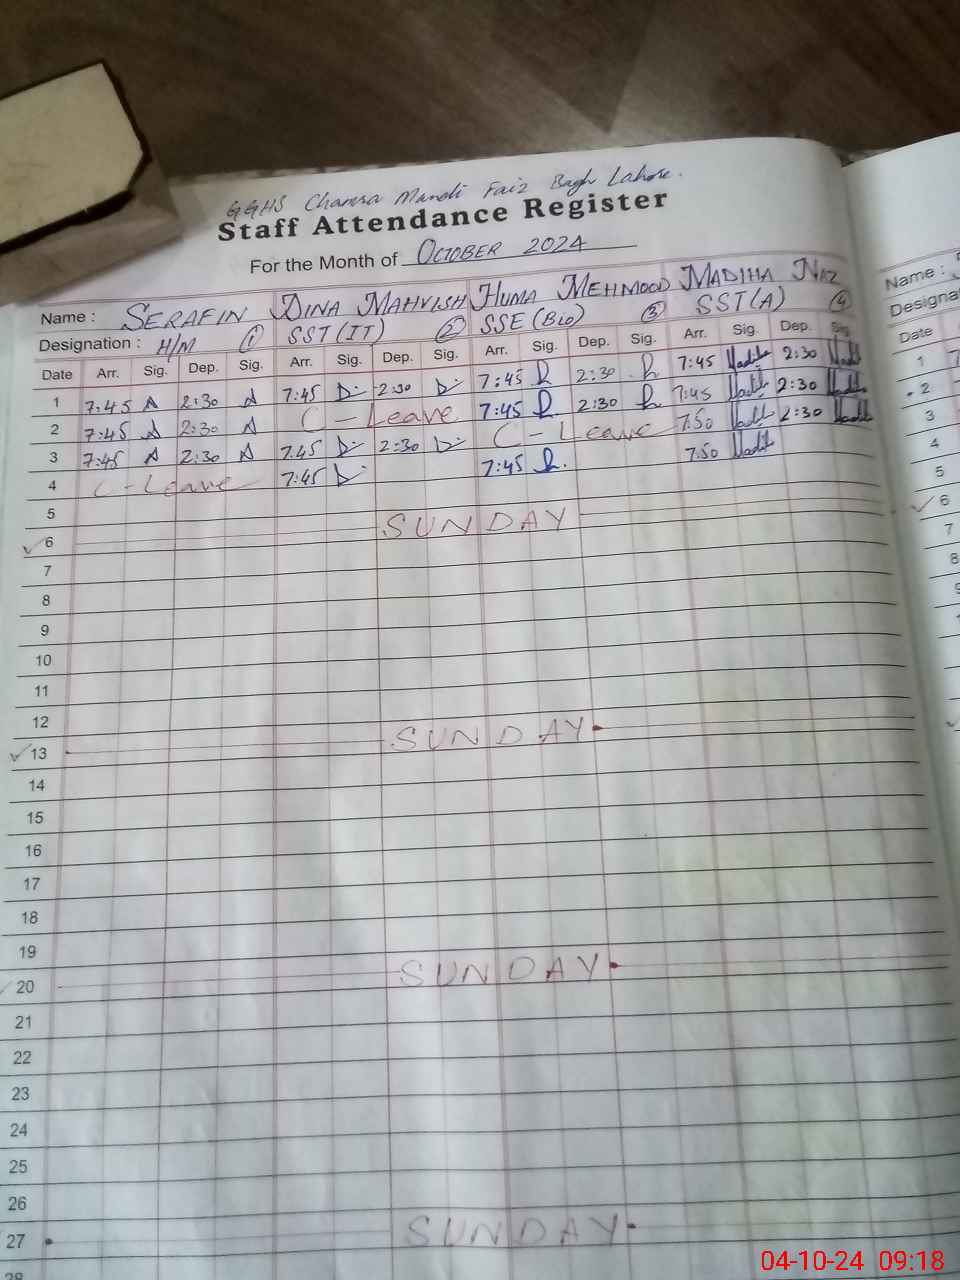 GGHS Chamra Mandi Faiz Bagh Lahore.
Staff Attendance Register
For the Month of OCTOBER 2024
Name : SERAFIN DINA MAHVISH HUMA MEHMOOD MADIHA NAZ
Designation : H/M ① SST(IT) ② SSE(BIO) ③ SST(A) ④
Date Arr. Sig. Dep. Sig. Arr. Sig. Dep. Sig. Arr. Sig. Dep. Sig. Arr. Sig. Dep. Sig.
1 7:45 2:30 7:45 2:30 7:45 2:30 7:45 2:30
2 7:45 2:30 C-Leave 7:45 2:30 7:45 2:30
3 7:45 2:30 7:45 2:30 C-Leave 7:50 2:30
4 C-Leave 7:45 7:45 7:50
5
6 SUNDAY
7
8
9
10
11
12
13 SUNDAY
14
15
16
17
18
19
20 SUNDAY
21
22
23
24
25
26
27 SUNDAY
28
Name :
Date
1
2
3
4
5
6
7
8
04-10-24 09:18